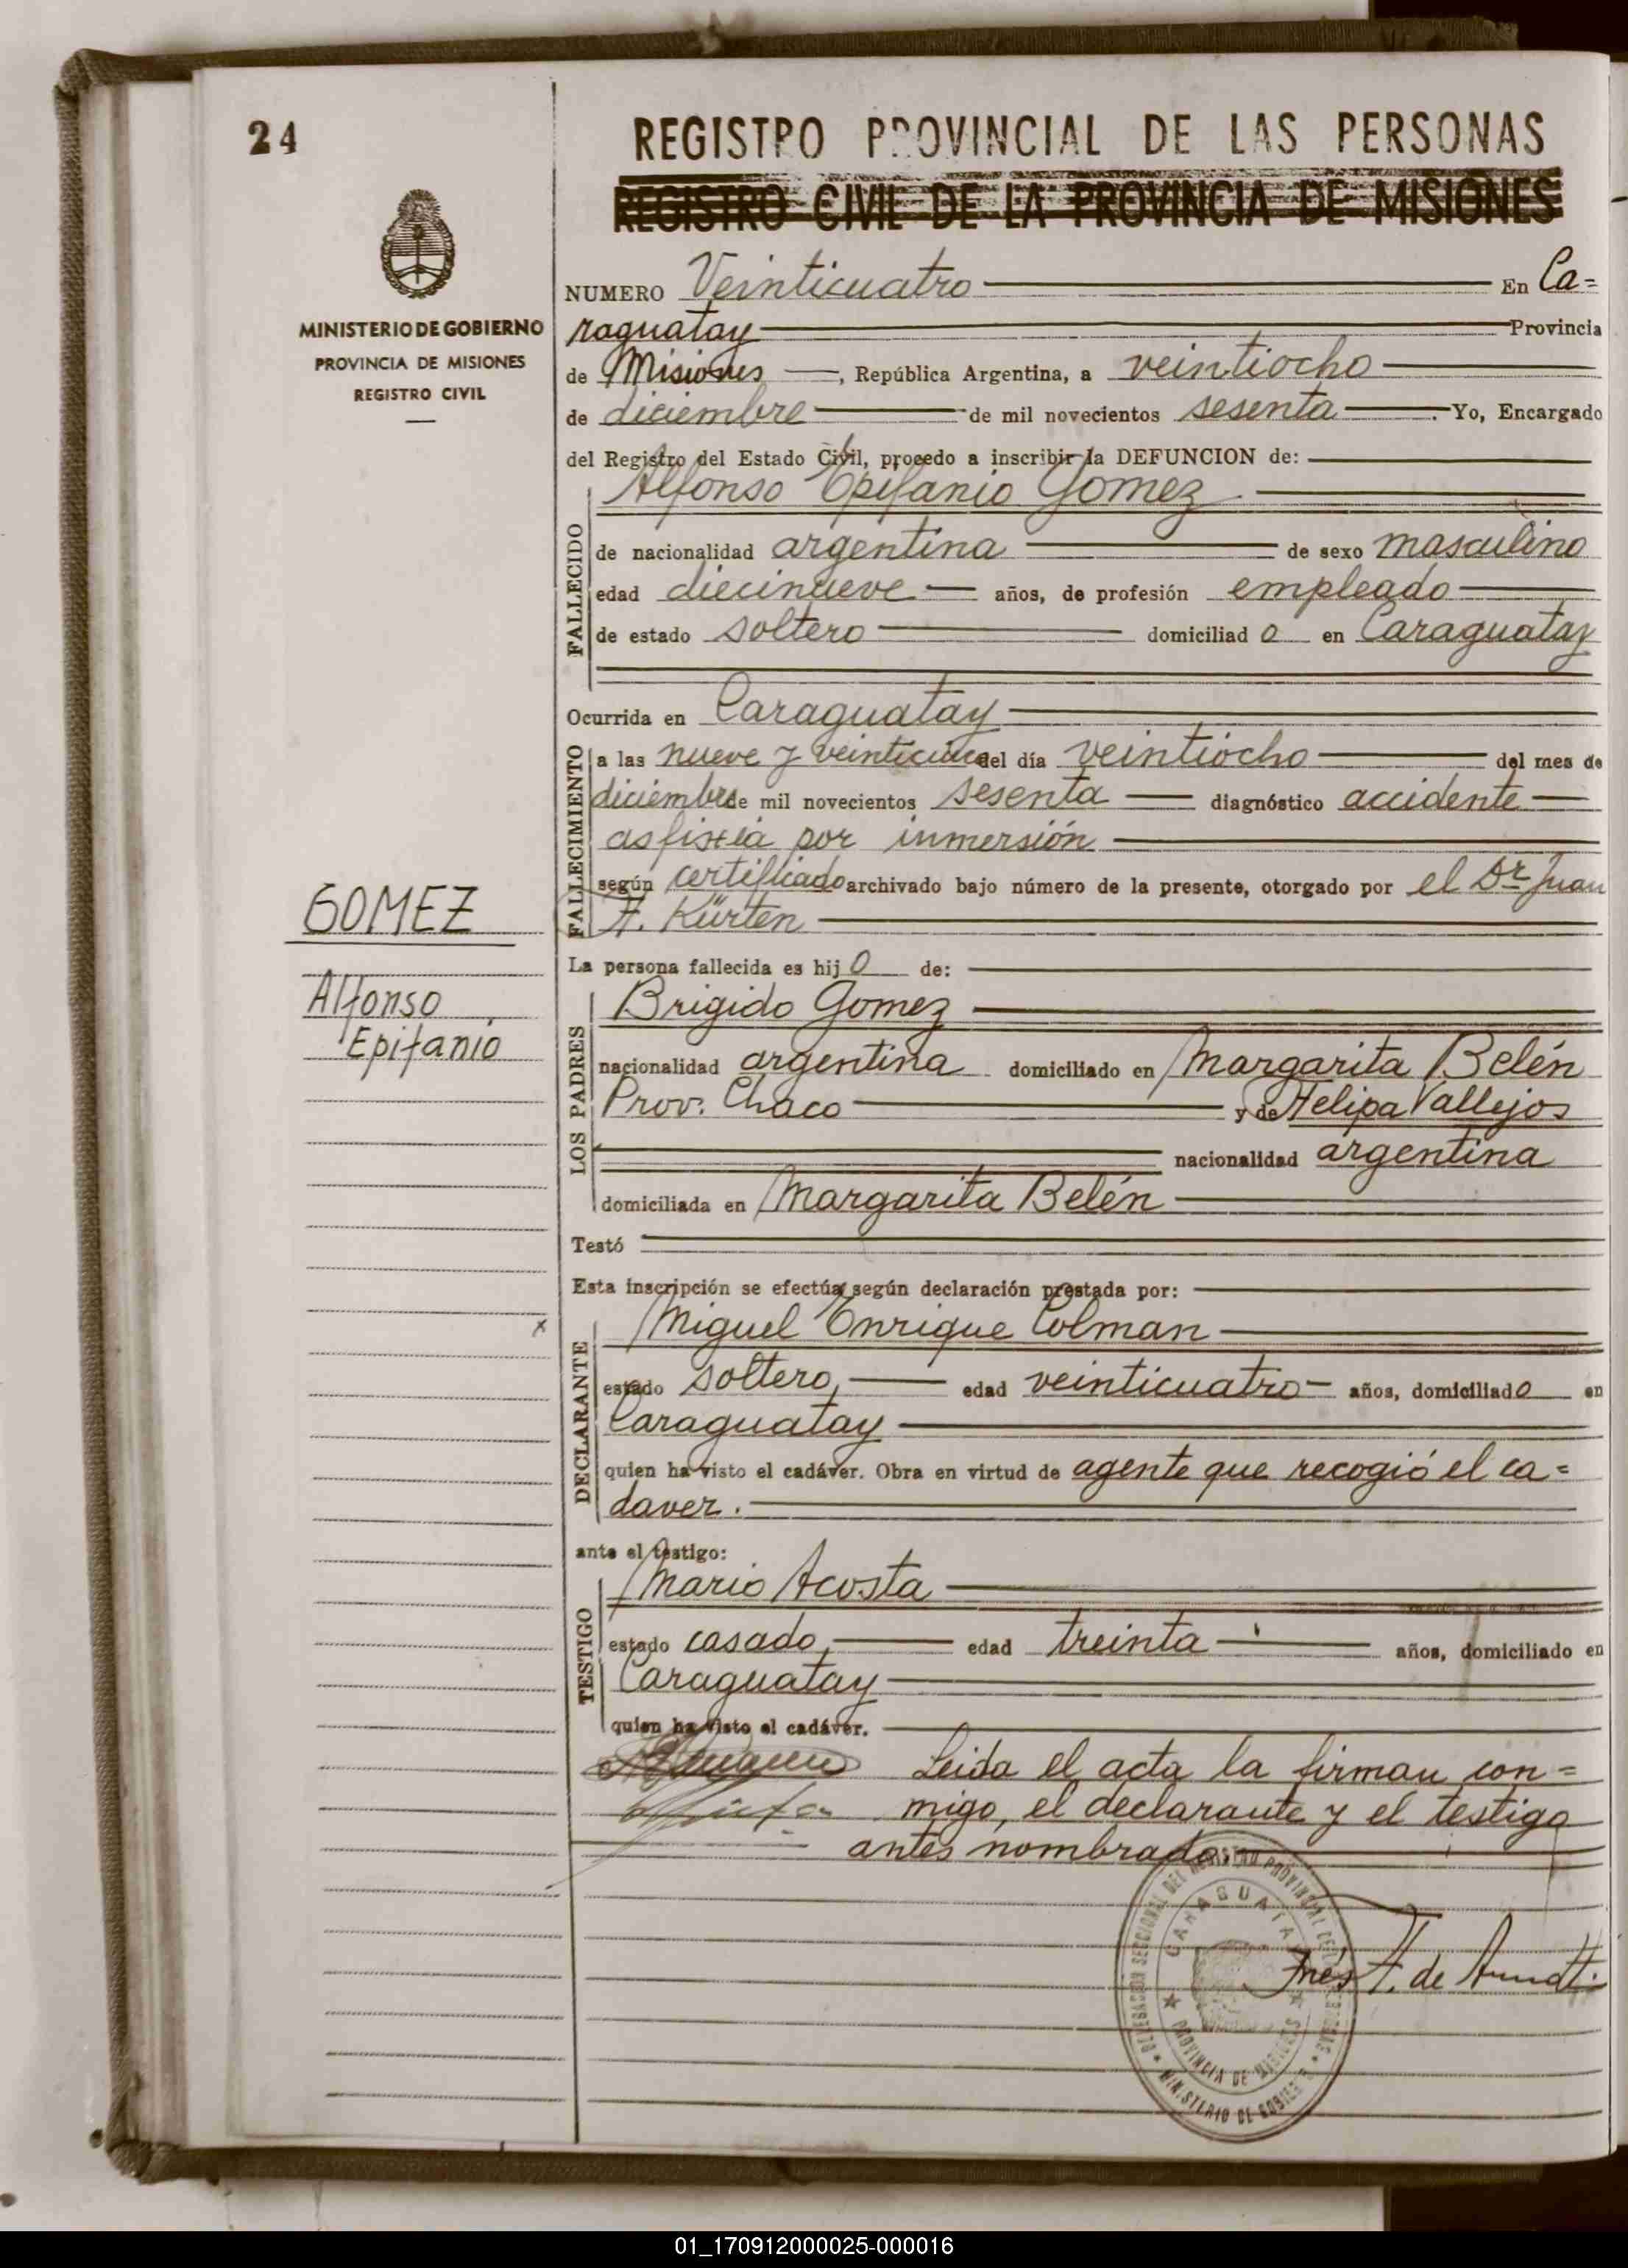 24
REGISTRO PROVINCIAL DE LAS PERSONAS
REGISTRO CIVIL DE LA PROVINCIA DE MISIONES
MINISTERIO DE GOBIERNO
PROVINCIA DE MISIONES
REGISTRO CIVIL
NUMERO Veinticuatro En Ca=
raguatay Provincia
de Misiones, República Argentina, a veintiocho
de diciembre de mil novecientos sesenta. Yo, Encargado
del Registro del Estado Civil, procedo a inscribir la DEFUNCION de:
Alfonso Epifanio Gomez
FALLECIDO
de nacionalidad argentina de sexo masculino
edad diecinueve años, de profesión empleado
de estado soltero domiciliad o en Caraguatay
Ocurrida en Caraguatay
FALLECIMIENTO
a las nueve y veinticinco del día veintiocho del mes de
diciembre de mil novecientos sesenta diagnóstico accidente
asfixia por inmersión
según certificado archivado bajo número de la presente, otorgado por el Dr Juan
F. Kürten
GOMEZ
Alfonso
Epifanio
La persona fallecida es hij o de:
LOS PADRES
Brigido Gomez
nacionalidad argentina domiciliado en Margarita Belén
Prov. Chaco y de Felipa Vallejos
nacionalidad argentina
domiciliada en Margarita Belén
Testó
Esta inscripción se efectúa según declaración prestada por:
DECLARANTE
Miguel Enrique Colman
estado soltero, edad veinticuatro años, domiciliado en
Caraguatay
quien ha visto el cadáver. Obra en virtud de agente que recogió el ca=
daver.
ante el testigo:
TESTIGO
Mario Acosta
estado casado, edad treinta años, domiciliado en
Caraguatay
quien ha visto el cadáver.
Leida el acta la firman con=
migo, el declarante y el testigo
antes nombrado.
DELEGACION SECCIONAL DEL REGISTRO PROVINCIAL DE LAS PERSONAS
CARAGUATAY
PROVINCIA DE MISIONES
MINISTERIO DE GOBIERNO
Inés F. de Arndt
01_170912000025-000016